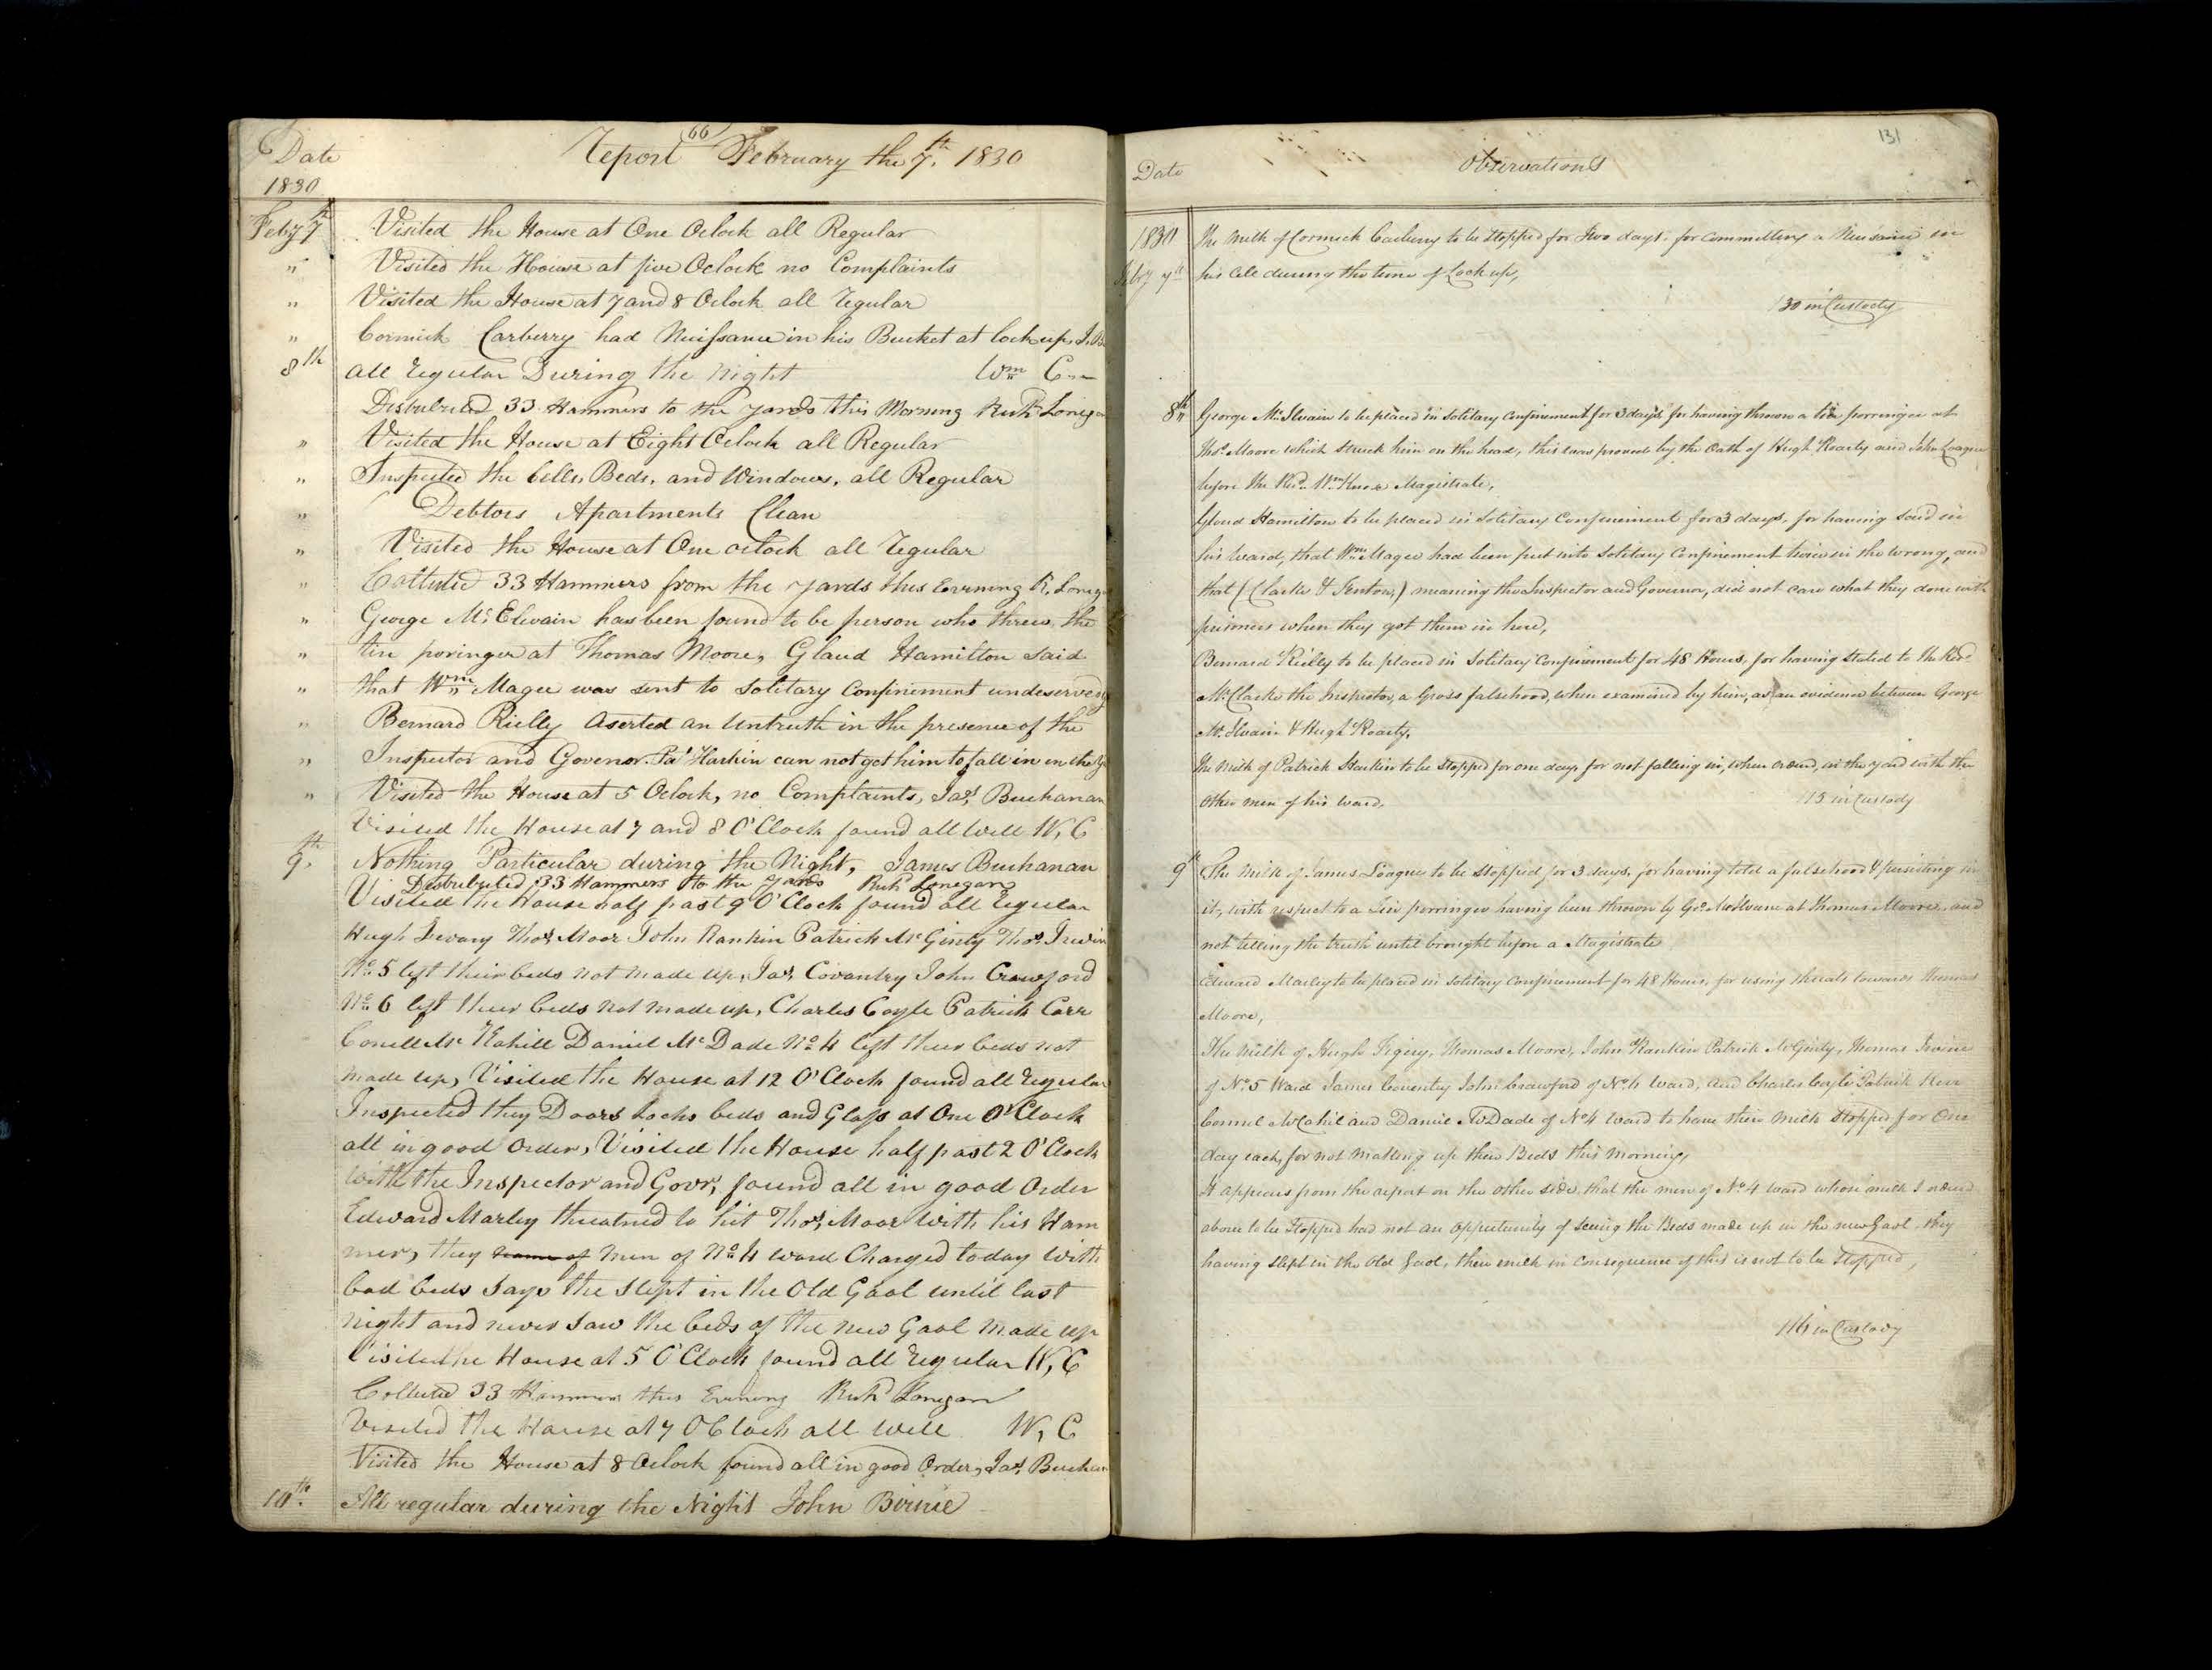 66
Date
Report February the 7th. 1830
1830
Feby 7th Visited the House at One Oclock all Regular
" Visited the House at five Oclock no Complaints
" Visited the House at 7 and 8 Oclock all regular
" Cormick Carberry had Nuissance in his Bucket at lock up,
8th all regular During the night Wm C
Distributed 33 Hammers to the yards this Morning Richd Lonegan
" Visited the House at Eight Oclock all Regular
" Inspected the Cells, Beds, and Windows, all Regular
" Debtors Apartments Clean
" Visited the House at One oclock all regular
" Collected 33 Hammers from the yards this Evening R. Loneg
" George Mc Elwain has been found to be person who threw the
" tin poringer at Thomas Moore, Glaud Hamilton said
" that Wm Magee was sent to solitary Confinement undeservedly
" Bernard Rielly aserted an untruth in the presence of the
" Inspector and Govenor. Pat Harkin can not get him to fall in in the
" Visited the House at 5 Oclock, no Complaints, Jas. Buchanan
Visited the House at 7 and 8 O'Clock found all well W, C
9th. Nothing Particular during the Night, James Buchanan
Distributed 33 Hammers to the yards Richd Lonegan
Visited the House half past 9 O'Clock found all regular
Hugh Devany Thos. Moor John Rankin Patrick McGinty Thos. Irwin
No. 5 left their beds not made up, Jas. Coventry John Crawford
No. 6 left their beds not made up, Charles Coyle Patrick Carr
Conell Mc Kahill Daniel Mc Dade No. 4 left their beds not
made up, Visited the House at 12 O'Clock found all regular
Inspected they Doors Locks beds and Glass at One O'Clock
all in good Order, Visited the House half past 2 O'Clock
with the Inspector and Govr, found all in good Order
Edward Marley threatned to hit Thos. Moor with his Ham
mer, they name of men of No. 4 ward Charged today with
bad beds Says the Slept in the Old Gaol until last
night and never saw the beds of the new Gaol made up
Visited he House at 5 O'Clock found all regular W, C
Collected 33 Hammers this Evening Richd Lonegan
Visited the House at 7 O'Clock all well W, C
Visited the House at 8 Oclock found all in good Order, Jas. Buchan
10th. All regular during the Night John Birnie
131
Date
Observations
1830 The Milk of Cormick Carberry to be stopped for Two days, for committing a Nuisance in
Feby 7th his Cell during the time of Lock up,
130 in Custody
8th George Mc Ilwain to be placed in Solitary Confinement for 3 days for having thrown a tin porringer at
Thos. Moore which struck him on the head, this was proved by the Oath of Hugh Roarty and John Loague
before the Revd. Wm Knox Magistrate,
Gloud Hamilton to be placed in Solitary Confinement for 3 days, for having said in
his ward, that Wm Magee had been put into Solitary Confinement twice in the wrong, and
that (Clarke & Fenton,) meaning the Inspector and Governor, did not care what they done with
prisoners when they got them in here,
Bernard Reilly to be placed in Solitary Confinement for 48 Hours, for having stated to the Revd.
Mr Clarke the Inspector, a Gross falsehood, when examined by him, as an evidence between George
Mc Ilwain & Hugh Roarty,
The Milk of Patrick Harkin to be stopped for one day, for not falling in, when ordered, in the yard with the
other men of his ward. 115 in Custody
9th The Milk of James Loague to be stopped for 3 days, for having told a falsehood & persisting in
it, with respect to a tin porringer having been thrown by Geo. McIlwaine at Thomas Moore, and
not telling the truth until brought before a Magistrate
Edward Marley to be placed in Solitary Confinement for 48 Hours, for using threats towards Thomas
Moore,
The Milk of Hugh Thomas Moore, John Rankin Patrick McGinty, Thomas Irvine
of No. 5 Ward James Coventry John Crawford of No. 4 ward, and Charles Coyle Patrick Kerr
Connel McCahil and Daniel McDade of No 4 ward to have their Milk stopped for One
day each, for not Making up their Beds this Morning,
It appears from the report on the other side, that the men of No. 4 ward whose milk I ordered
above to be stopped had not an oppertunity of seeing the Beds made up in the new Gaol, they
having slept in the Old Gaol, their milk in consequence of this is not to be stopped,
116 in Custody